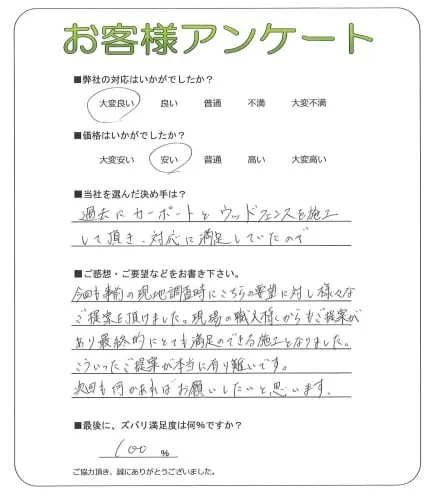 お客様アンケート
■弊社の対応はいかがでしたか?
大変良い 良い 普通 不満 大変不満
■価格はいかがでしたか?
大変安い 安い 普通 高い 大変高い
■当社を選んだ決め手は?
過去にカーポートとウッドフェンスを施工
して頂き、対応に満足していたので
■ご感想・ご要望などをお書き下さい。
今回も事前の現地調査時にこちらの要望に対し様々な
ご提案を頂けました。現場の職人様からもご提案が
あり最終的にとても満足のできる施工となりました。
こういったご提案が本当に有り難いです。
次回も何かあればお願いしたいと思います。
■最後に、ズバリ満足度は何%ですか?
100 %
ご協力頂き、誠にありがとうございました。